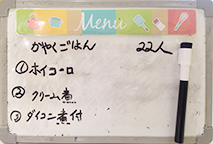 Menu
かやくごはん 22人
①ホイコーロ
②クリーム煮
③ダイコン煮付